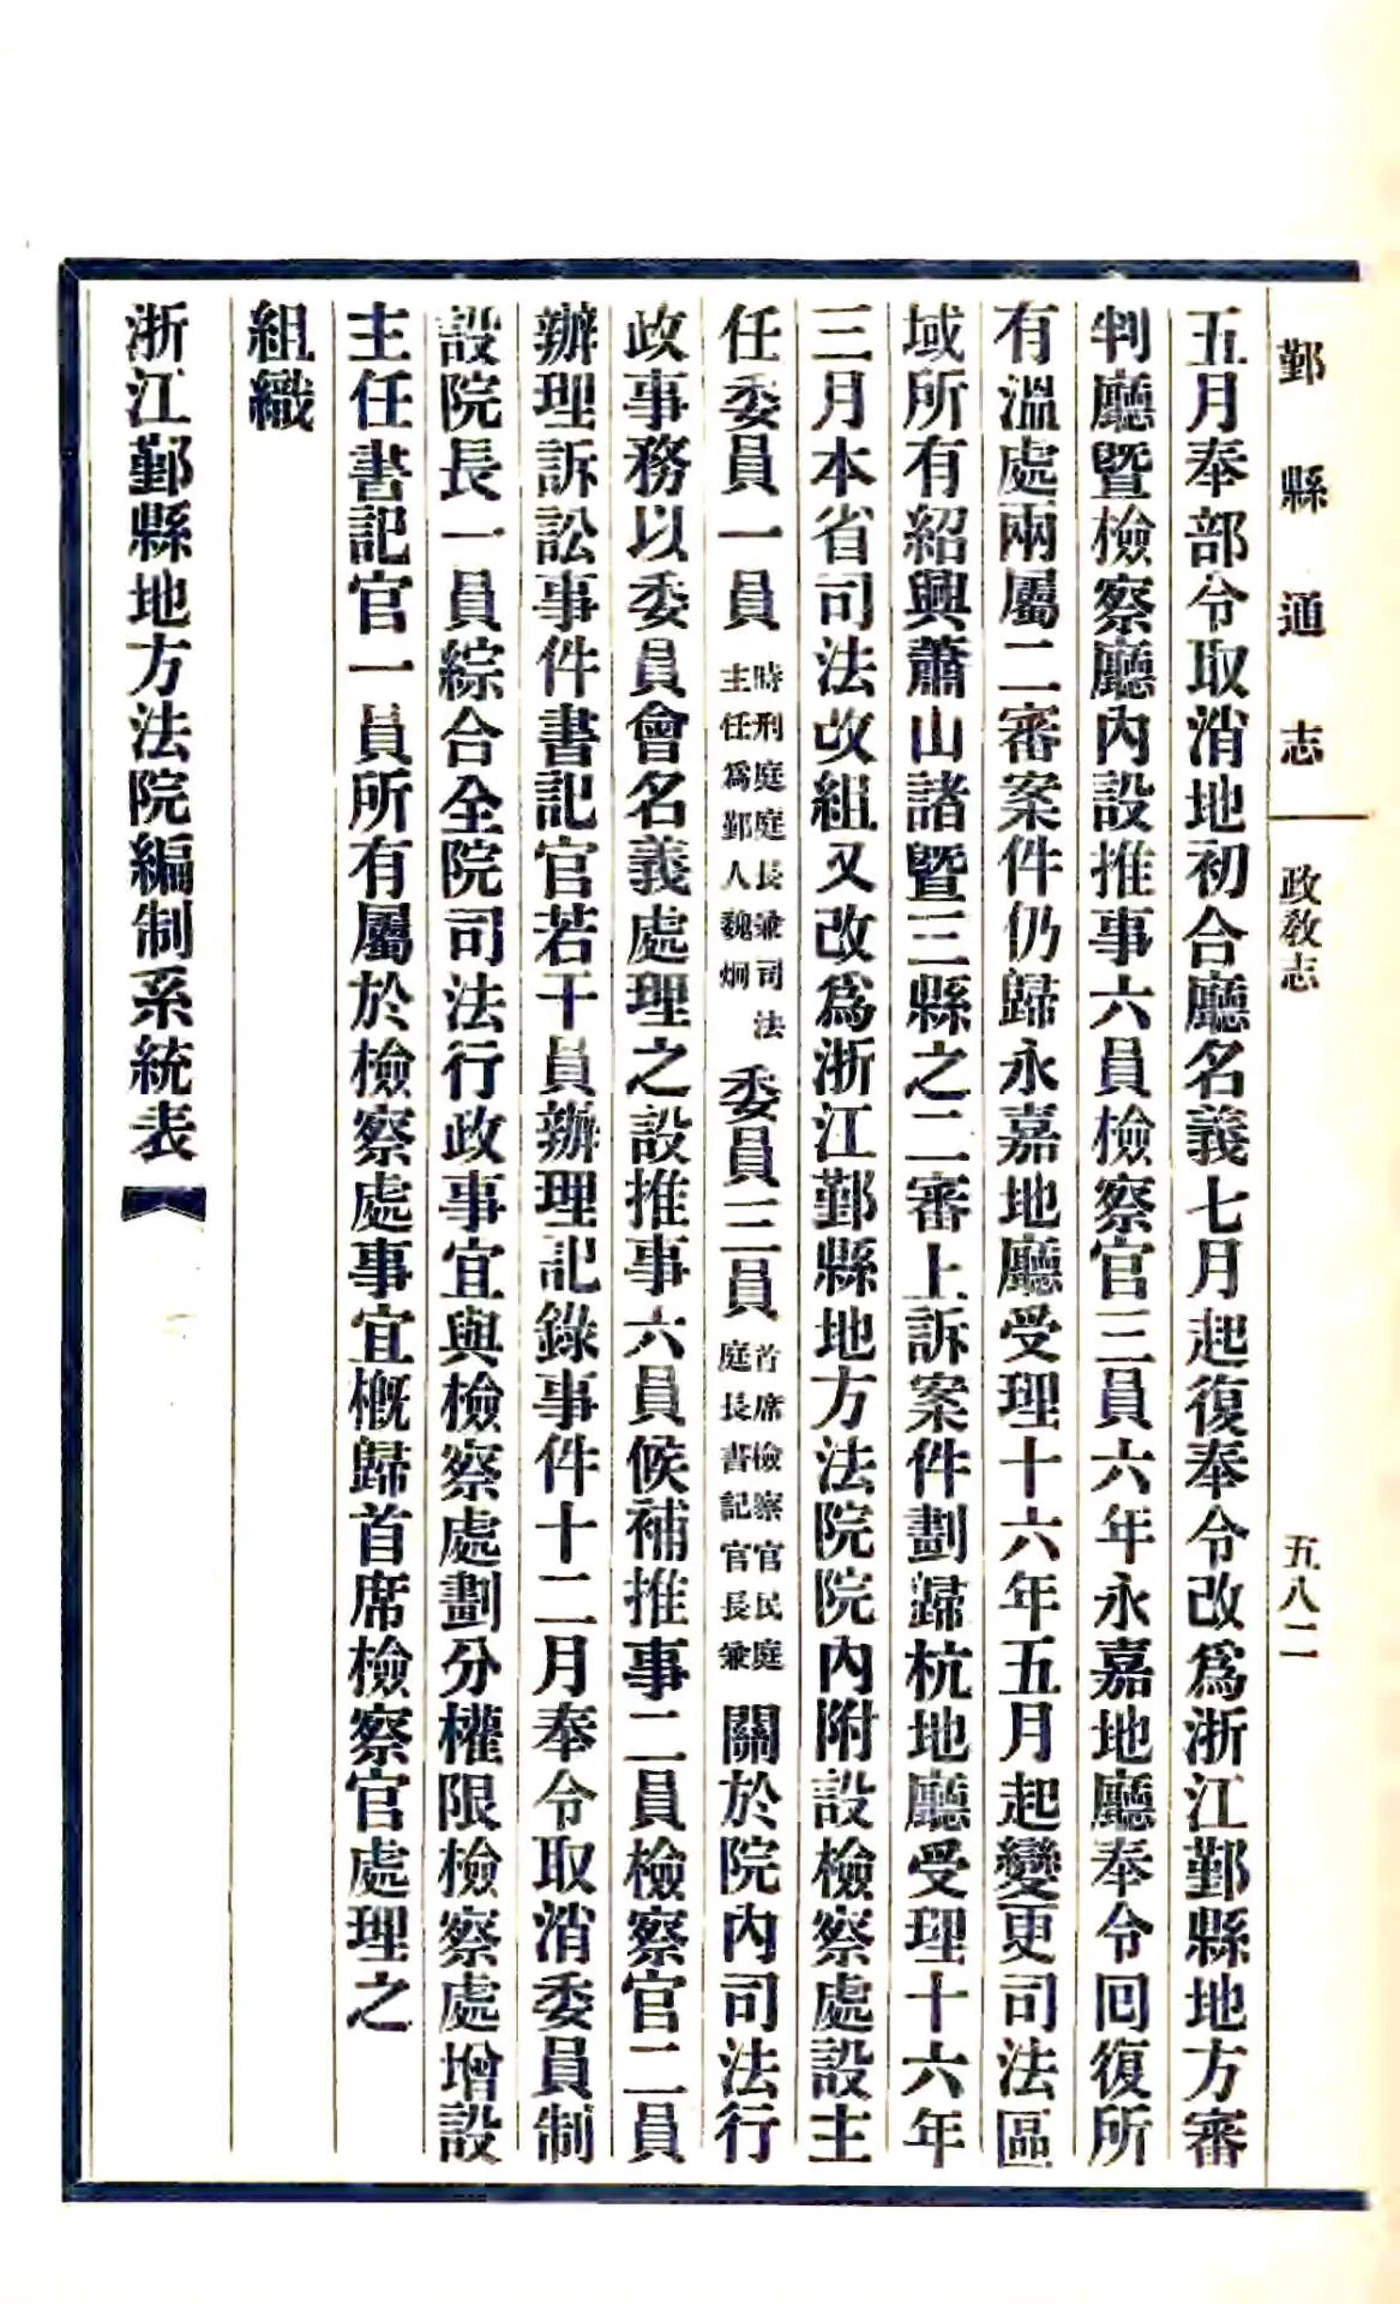 鄞縣通志 政敎志 五八二
五月奉部令取消地初合廳名義七月起復奉令改爲浙江鄞縣地方審
判廳暨檢察廳內設推事六員檢察官三員六年永嘉地廳奉令回復所
有溫處兩屬二審案件仍歸永嘉地廳受理十六年五月起變更司法區
域所有紹興蕭山諸暨三縣之二審上訴案件劃歸杭地廳受理十六年
三月本省司法改組又改爲浙江鄞縣地方法院院內附設檢察處設主
任委員一員時刑庭庭長兼司法主任爲鄞人魏炯委員三員首席檢察官民庭庭長書記官長兼關於院內司法行
政事務以委員會名義處理之設推事六員候補推事二員檢察官二員
辦理訴訟事件書記官若干員辦理記錄事件十二月奉令取消委員制
設院長一員綜合全院司法行政事宜與檢察處劃分權限檢察處增設
主任書記官一員所有屬於檢察處事宜槪歸首席檢察官處理之
組織
浙江鄞縣地方法院編制系統表